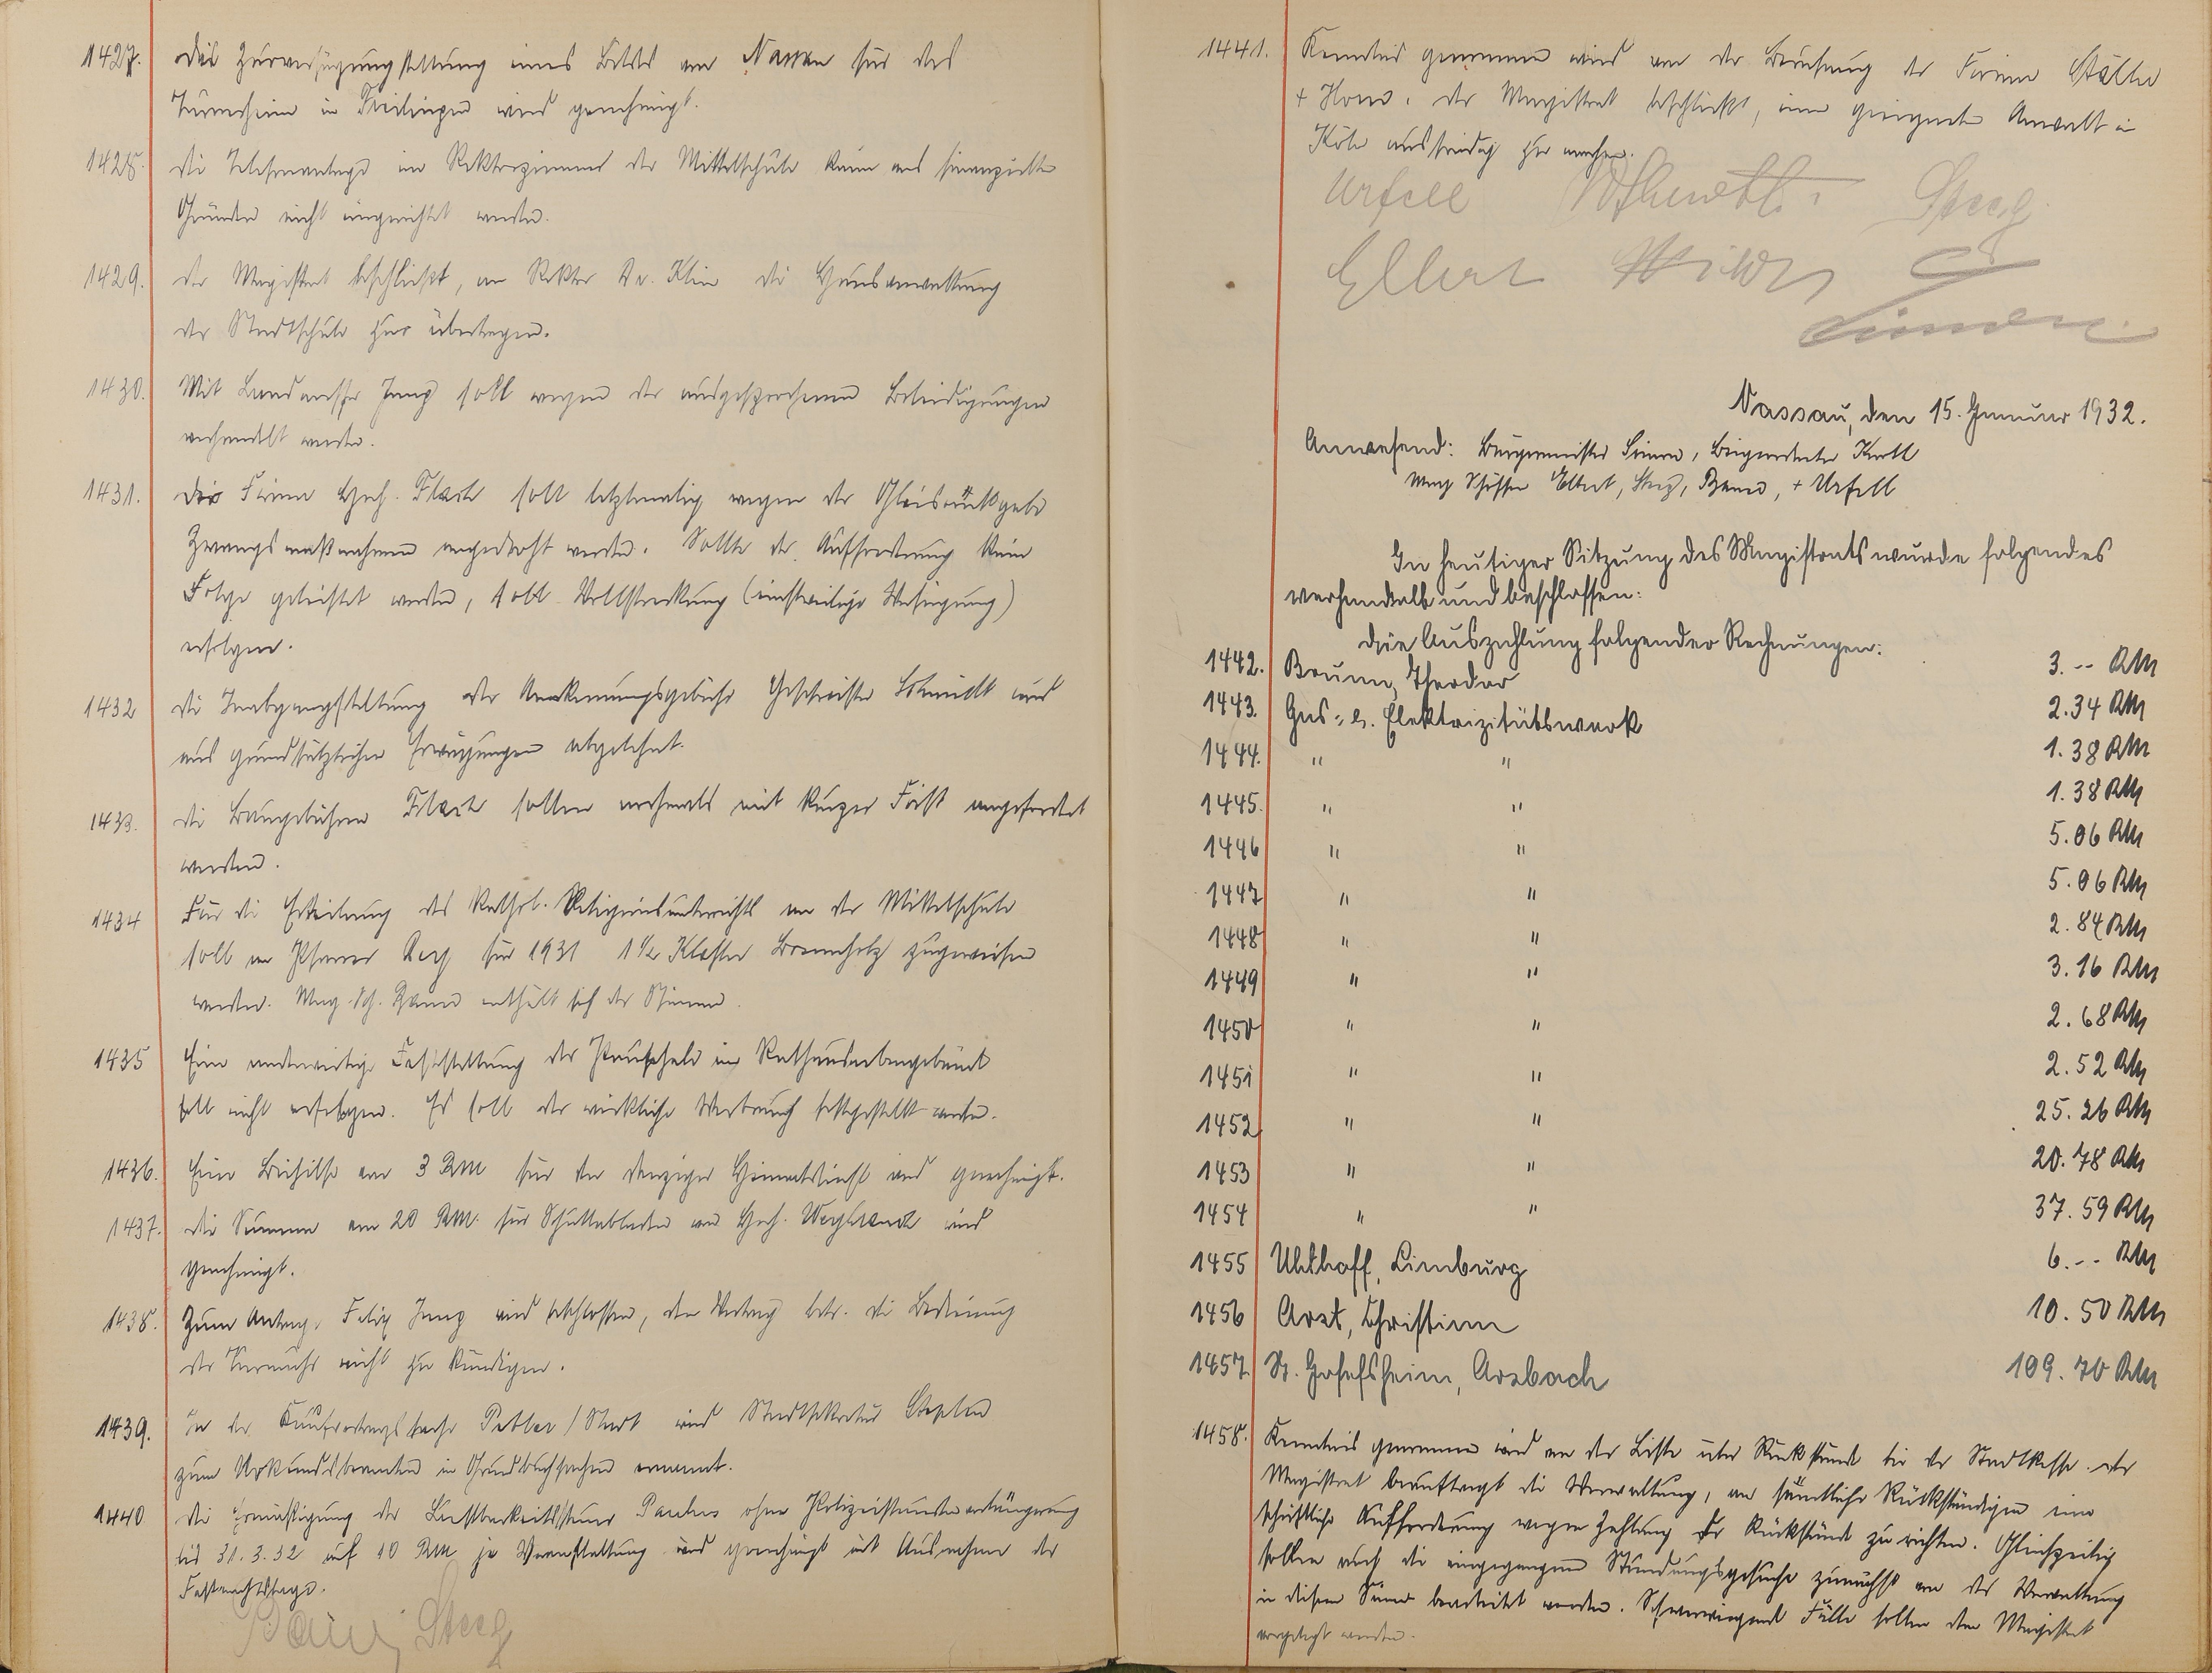 1427. Die Zurverfügungstellung eines Bettes an Nassau für das
Turnerheim in Freilingen wird genehmigt.
1428. Die Telefonanlage im Rektorzimmer der Mittelschule kann aus finanziellen
Gründen nicht eingerichtet werden.
1429. Der Magistrat beschließt, an Rektor Dr. Klein die Hausverwaltung
der Stadtschule zu übertragen.
1430. Mit Landmesser Jung soll wegen der ausgesprochenen Beleidigungen
verhandelt werden.
1431. Die Firma Hch. Flach soll letztmalig wegen der Gleisrückgabe
Zwangsmaßnahmen angedroht werden. Sollte der Aufforderung keine
Folge geleistet werden, soll Vollstreckung (einstweilige Verfügung)
erfolgen.
1432 Die Inabgangstellung der Anerkennungsgebühr Geschwister Schmidt wird
aus grundsätzlichen Erwägungen abgelehnt.
1433. Die Baugebühren Flach sollen nochmals mit kurzer Frist angefordert
werden.
1434 Für die Erteilung des kathol. Religionsunterrichts an der Mittelschule
soll an Pfarrer für 1931 1 1/2 Klafter Brennholz zugewiesen
werden. Mag. Sch. enthält sich der Stimme.
1435 Eine anderweitige Feststellung der Pauschale im Rathausnebengebäude
soll nicht erfolgen. Es soll der wirkliche Verbrauch festgestellt werden.
1436. Eine Beihilfe von 3 RM für den Danziger Heimatdienst wird genehmigt.
1437. Die Summe von 20 RM. für Schuttabladen von Hch. wird
genehmigt.
1438. Zum Antrag Felix Jung wird beschlossen, den Vertrag betr. die Bedienung
der nicht zu kündigen.
1439. In der Kaufvertragssache / Stadt wird Stadtsekretär
zum Urkundsbeamten in Grundbuchsachen ernannt.
1440 Die Ermäßigung der Lustbarkeitssteuer Paulus ohne Polizeistundenverlängerung
bis 31.3.32 auf 10 RM je Veranstaltung wird genehmigt mit Ausnahme der
Fastnachtstage.
Steeg
1441. Kenntnis genommen wird von der Berufung der Firma
+ . Der Magistrat beschließt, einen geeigneten Anwalt in
Köln ausfindig zu machen.
Urfell Steeg
Elbert
Nassau, den 15. Januar 1932.
Anwesend: Bürgermeister , Beigeordneter
Mag. Schöffen Elbert, Steeg, , + Urfell
In heutiger Sitzung des Magistrats wurde folgendes
verhandelt und beschlossen:
Die Auszahlung folgender Rechnungen:
1442. Brunn, Theodor 3.-- RM
1443. Gas- u. Elektrizitätswerk 2.34 RM
1444. " " 1.38 RM
1445. " " 1.38 RM
1446 " " 5.06 RM
1447 " " 5.06 RM
1448 " " 2.84 RM
1449 " " 3.16 RM
1450 " " 2.68 RM
1451 " " 2.52 RM
1452 " " 25.26 RM
1453 " " 20.78 RM
1454 " " 37.59 RM
1455 Uhlhoff, Limburg 6.-- RM
1456 Arzt, Christian 10.50 RM
1457. St. Josefsheim, Arzbach 109.70 RM
1458. Kenntnis genommen wird von der Liste über Rückstände bei der Stadtkasse. Der
Magistrat beauftragt die Verwaltung, an sämtliche Rückständigen eine
schriftliche Aufforderung wegen Zahlung der Rückstände zu richten. Gleichzeitig
sollen auch die eingegangenen Stundungsgesuche zunächst von der Verwaltung
in diesem Sinne bearbeitet werden. Schwerwiegende Fälle sollen dem Magistrat
vorgelegt werden.